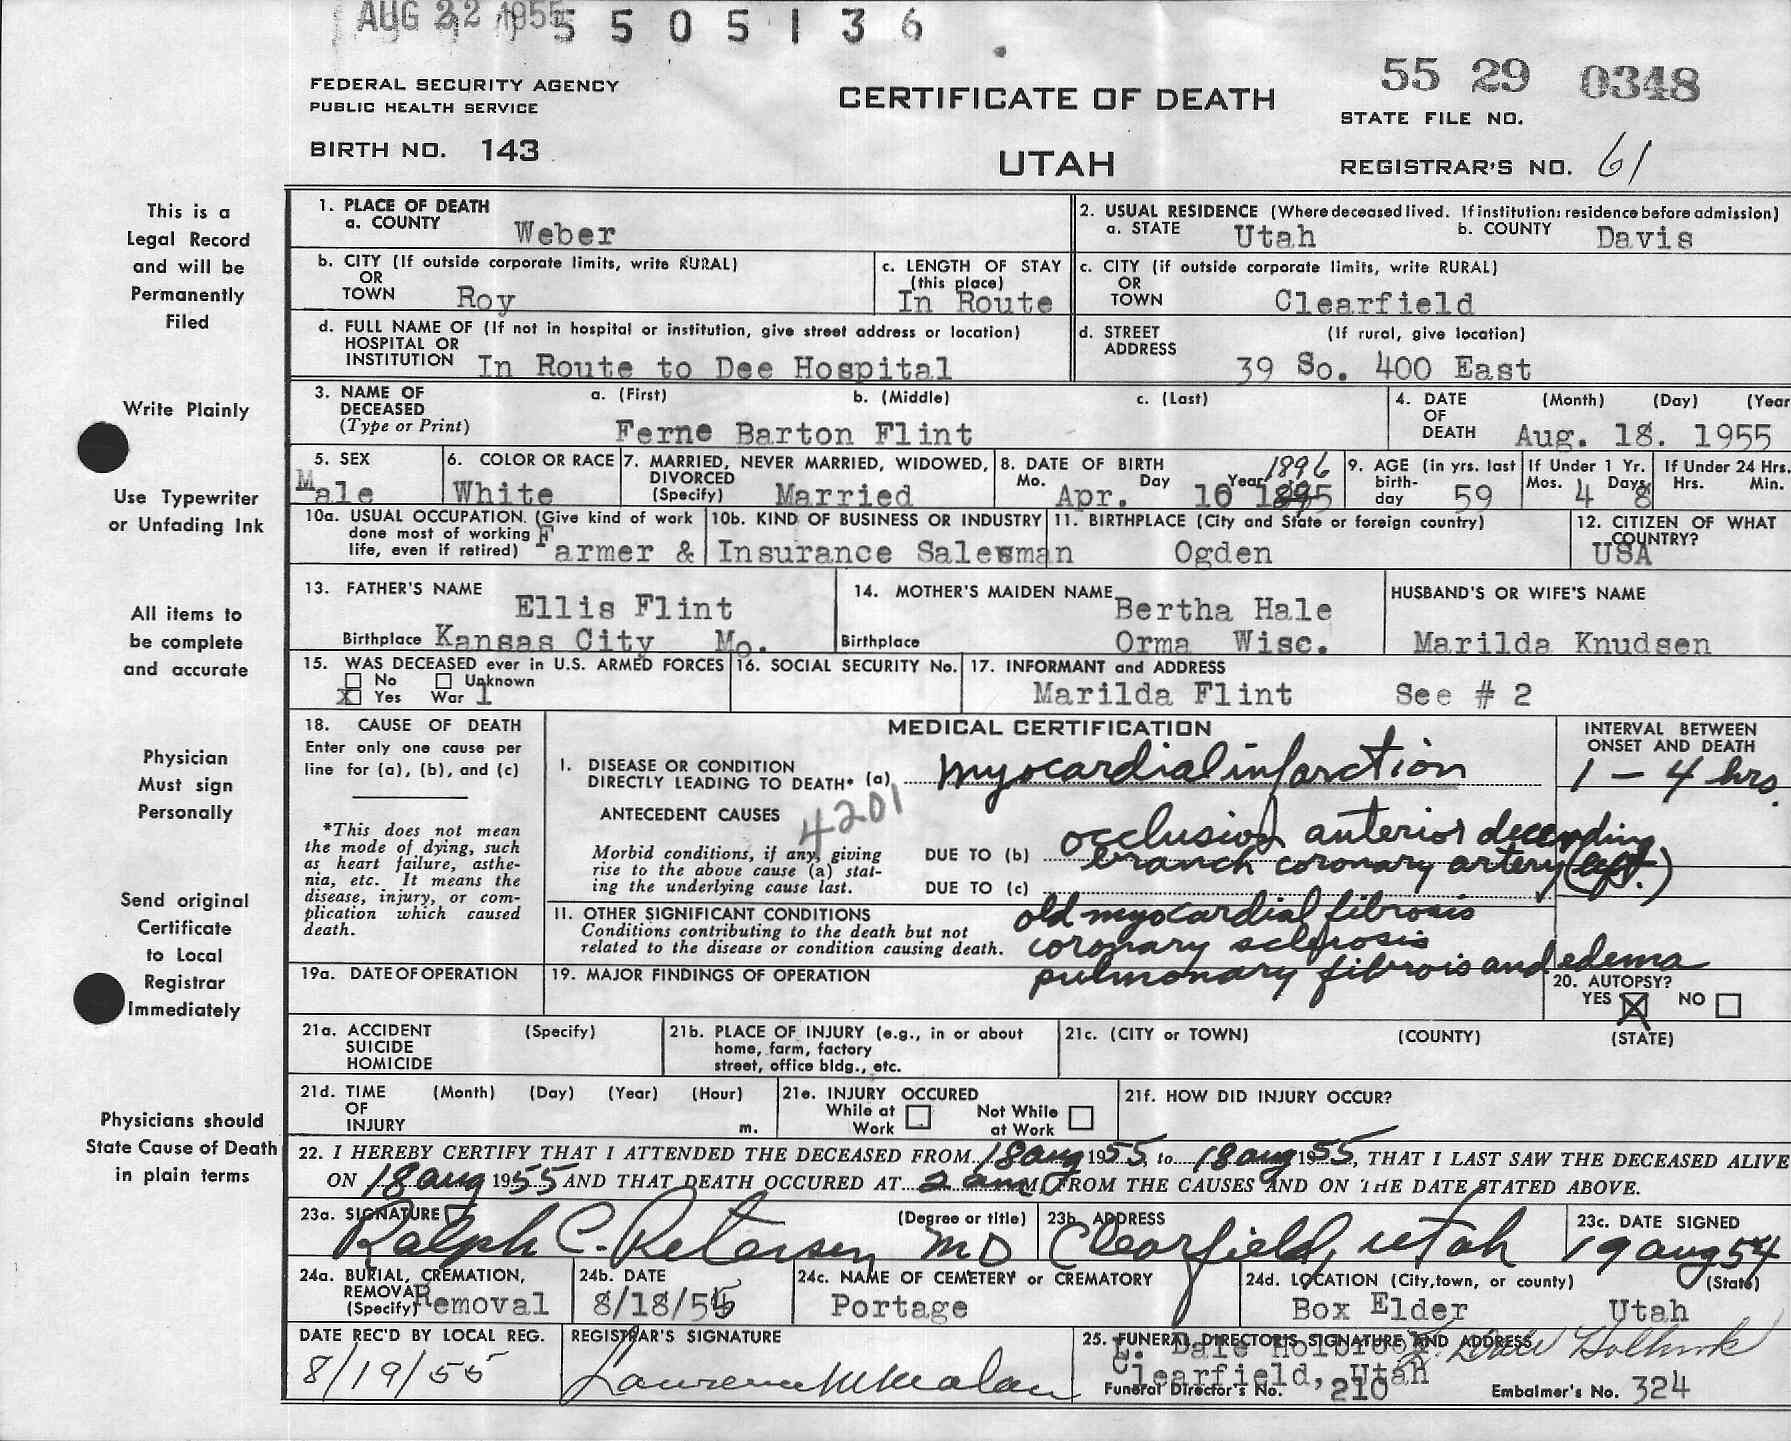 AUG 22 1955 5 5 0 5 1 3 6
FEDERAL SECURITY AGENCY
PUBLIC HEALTH SERVICE
BIRTH NO. 143
CERTIFICATE OF DEATH
UTAH
55 29 0348
STATE FILE NO.
REGISTRAR'S NO. 61
This is a
Legal Record
and will be
Permanently
Filed
Write Plainly
Use Typewriter
or Unfading Ink
All items to
be complete
and accurate
Physician
Must sign
Personally
Send original
Certificate
to Local
Registrar
Immediately
Physicians should
State Cause of Death
in plain terms
1. PLACE OF DEATH
a. COUNTY Weber
2. USUAL RESIDENCE (Where deceased lived. If institution: residence before admission)
a. STATE Utah b. COUNTY Davis
b. CITY (If outside corporate limits, write RURAL)
OR
TOWN Roy
c. LENGTH OF STAY
(this place)
In Route
c. CITY (if outside corporate limits, write RURAL)
OR
TOWN Clearfield
d. FULL NAME OF (If not in hospital or institution, give street address or location)
HOSPITAL OR
INSTITUTION In Route to Dee Hospital
d. STREET (If rural, give location)
ADDRESS 39 So. 400 East
3. NAME OF a. (First) b. (Middle) c. (Last)
DECEASED
(Type or Print) Ferne Barton Flint
4. DATE (Month) (Day) (Year
OF
DEATH Aug. 18. 1955
5. SEX
Male
6. COLOR OR RACE
White
7. MARRIED, NEVER MARRIED, WIDOWED,
DIVORCED
(Specify) Married
8. DATE OF BIRTH 1896
Mo. Day Year
Apr. 10 1895
9. AGE (in yrs. last
birth-
day 59
If Under 1 Yr.
Mos. 4 Days 8
If Under 24 Hrs.
Hrs. Min.
10a. USUAL OCCUPATION. (Give kind of work
done most of working
life, even if retired) Farmer &
10b. KIND OF BUSINESS OR INDUSTRY
Insurance Salesman
11. BIRTHPLACE (City and State or foreign country)
Ogden
12. CITIZEN OF WHAT
COUNTRY?
USA
13. FATHER'S NAME Ellis Flint
Birthplace Kansas City Mo.
14. MOTHER'S MAIDEN NAME Bertha Hale
Birthplace Orma Wisc.
HUSBAND'S OR WIFE'S NAME
Marilda Knudsen
15. WAS DECEASED ever in U.S. ARMED FORCES
No Unknown
X Yes War 1
16. SOCIAL SECURITY No.
17. INFORMANT and ADDRESS
Marilda Flint See # 2
18. CAUSE OF DEATH
Enter only one cause per
line for (a), (b), and (c)
*This does not mean
the mode of dying, such
as heart failure, asthe-
nia, etc. It means the
disease, injury, or com-
plication which caused
death.
MEDICAL CERTIFICATION
I. DISEASE OR CONDITION
DIRECTLY LEADING TO DEATH* (a) myocardial infarction
INTERVAL BETWEEN
ONSET AND DEATH
1 - 4 hrs.
ANTECEDENT CAUSES 4201
Morbid conditions, if any, giving
rise to the above cause (a) stat-
ing the underlying cause last.
DUE TO (b) occlusion anterior decending
branch coronary artery (left.)
DUE TO (c)
II. OTHER SIGNIFICANT CONDITIONS
Conditions contributing to the death but not
related to the disease or condition causing death.
old myocardial fibrosis
coronary sclerosis
pulmonary fibrois and edema
19a. DATE OF OPERATION
19. MAJOR FINDINGS OF OPERATION
20. AUTOPSY?
YES X NO
21a. ACCIDENT (Specify)
SUICIDE
HOMICIDE
21b. PLACE OF INJURY (e.g., in or about
home, farm, factory
street, office bldg., etc.
21c. (CITY or TOWN) (COUNTY) (STATE)
21d. TIME (Month) (Day) (Year) (Hour)
OF
INJURY m.
21e. INJURY OCCURED
While at Work Not While at Work
21f. HOW DID INJURY OCCUR?
22. I HEREBY CERTIFY THAT I ATTENDED THE DECEASED FROM 18 aug 1955, to 18 aug 1955, THAT I LAST SAW THE DECEASED ALIVE
ON 18 aug 1955 AND THAT DEATH OCCURED AT 2 am M, FROM THE CAUSES AND ON THE DATE STATED ABOVE.
23a. SIGNATURE (Degree or title)
Ralph C. Petersen MD
23b. ADDRESS
Clearfield, Utah
23c. DATE SIGNED
19 aug 54
24a. BURIAL, CREMATION,
REMOVAL
(Specify) Removal
24b. DATE
8/18/55
24c. NAME OF CEMETERY or CREMATORY
Portage
24d. LOCATION (City, town, or county) (State)
Box Elder Utah
DATE REC'D BY LOCAL REG.
8/19/55
REGISTRAR'S SIGNATURE
25. FUNERAL DIRECTOR'S SIGNATURE AND ADDRESS
L. Dale Holbrook L. Dale Holbrook
Clearfield, Utah
Funeral Director's No. 210 Embalmer's No. 324